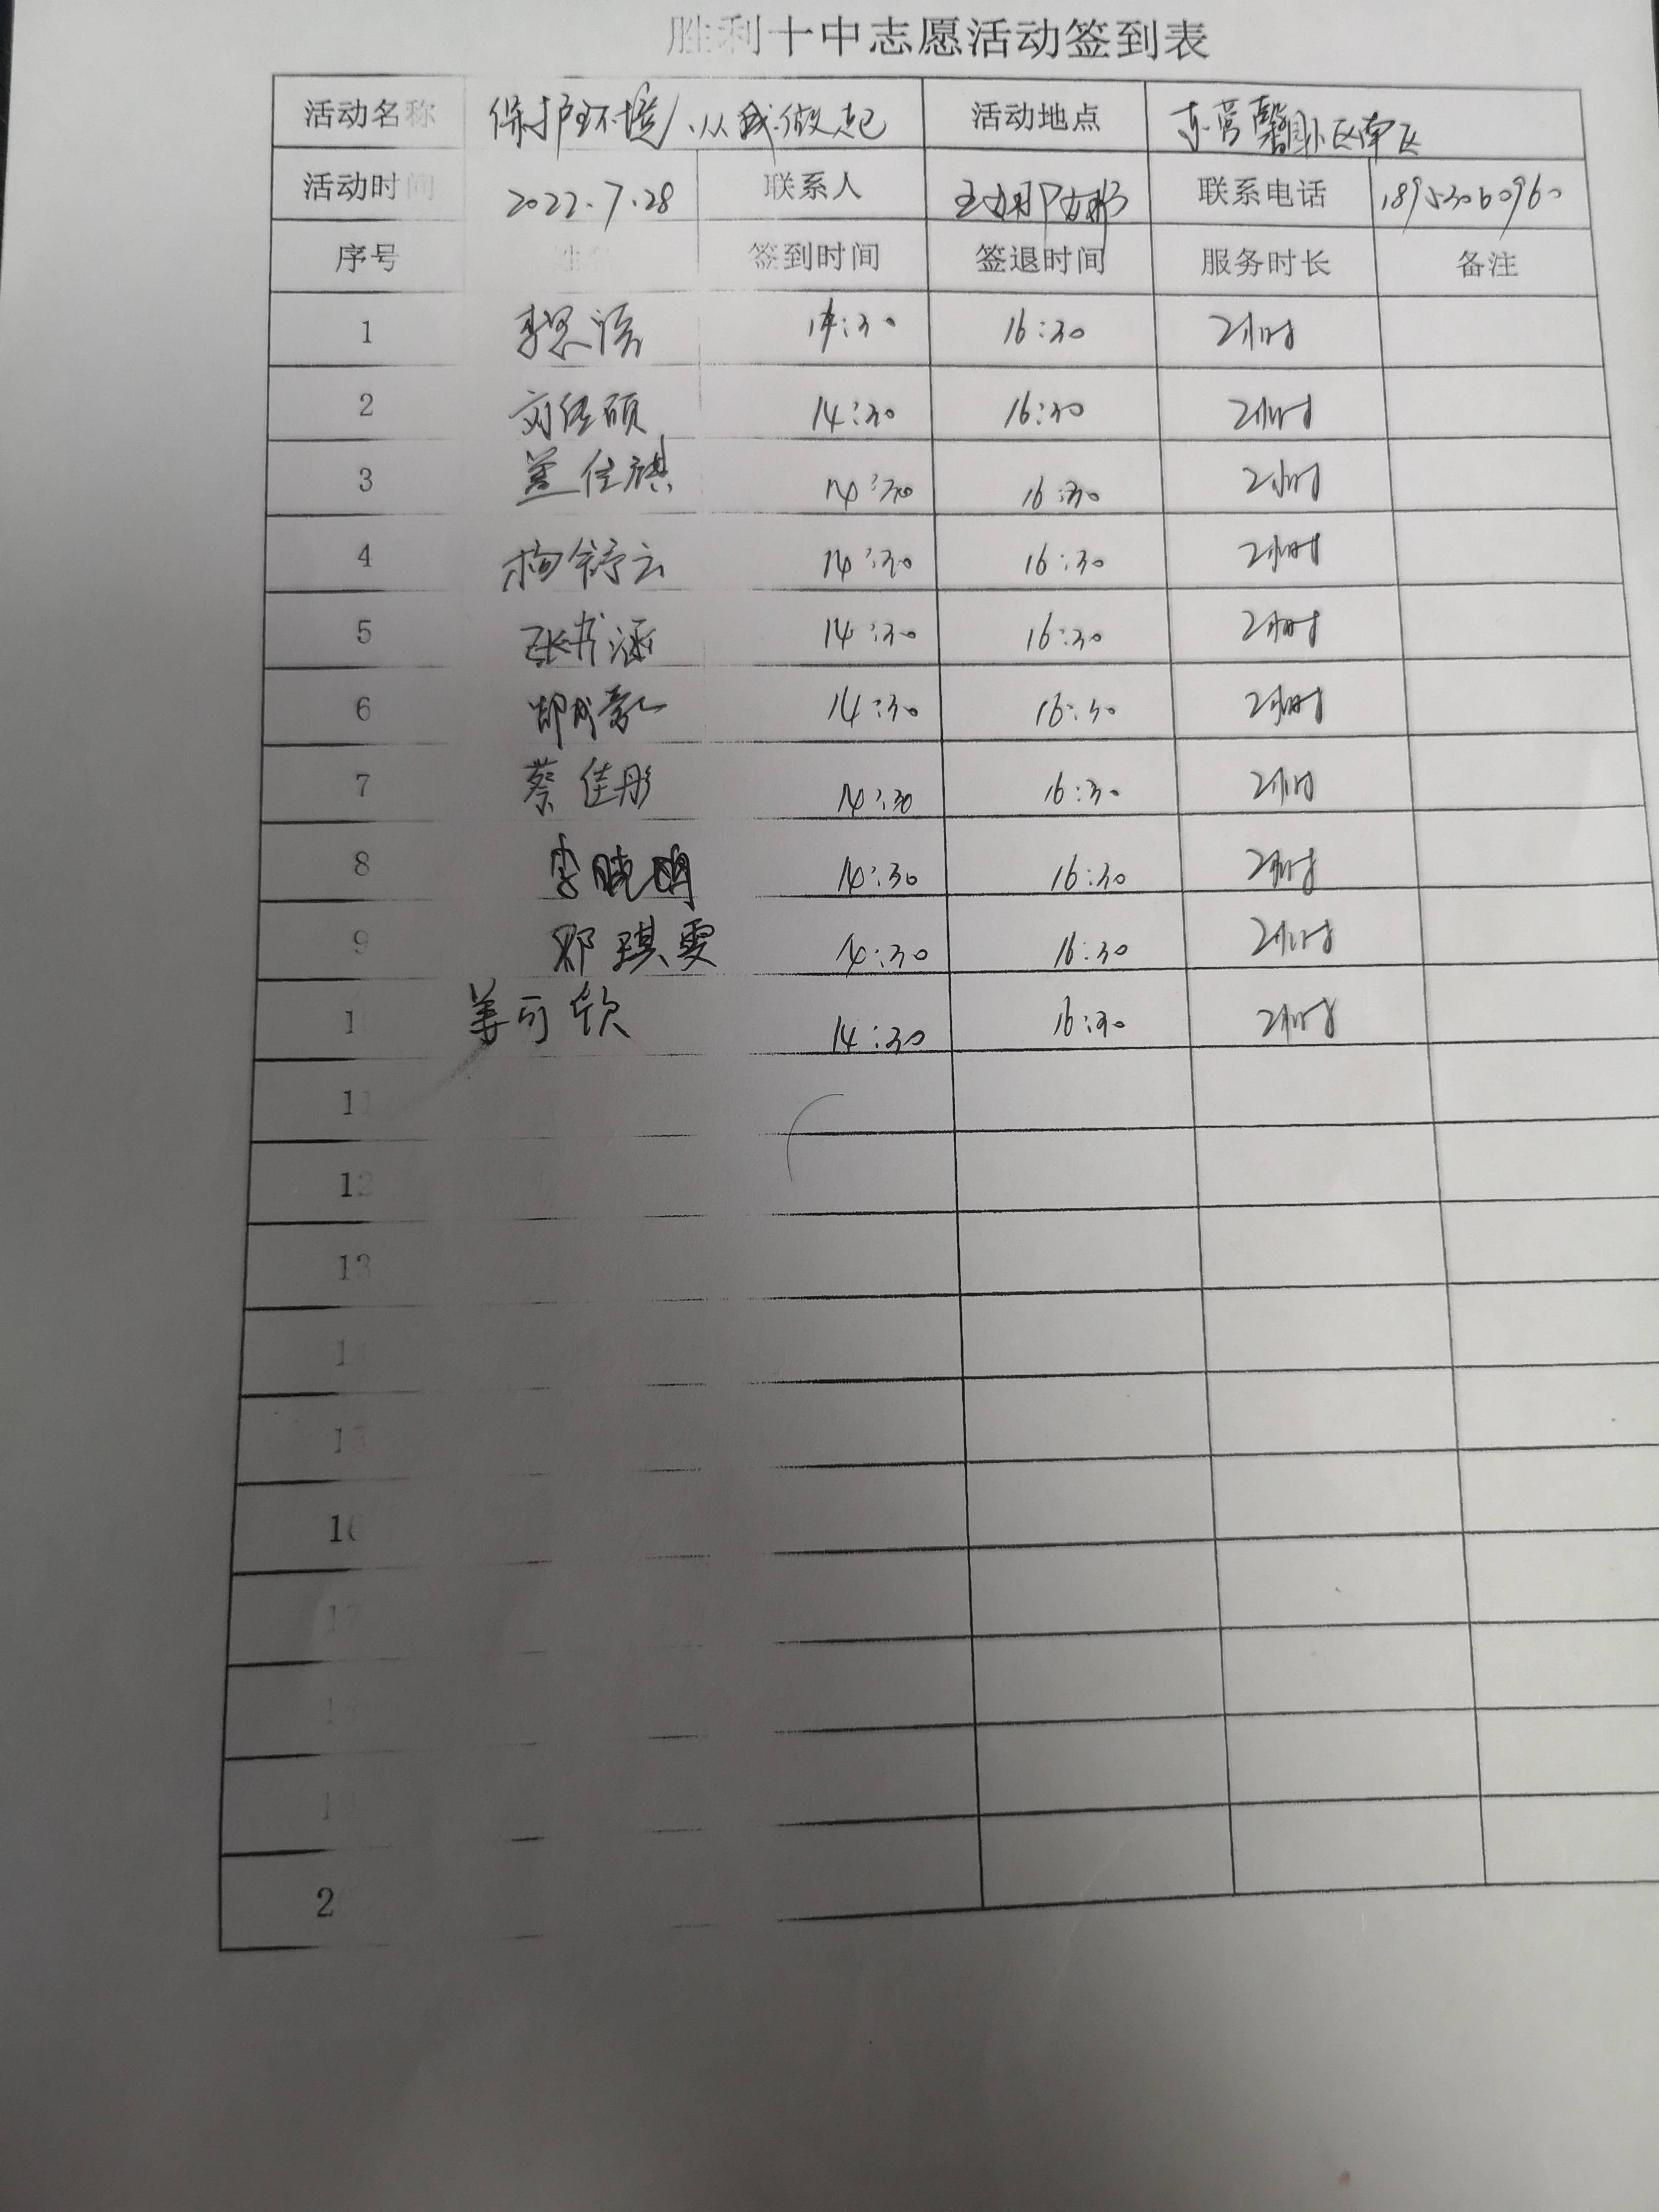 胜利十中志愿活动签到表
活动名称 保护环境，从我做起 活动地点 东营馨园小区南区
活动时间 2022.7.28 联系人 联系电话 18953060960
序号 姓名 签到时间 签退时间 服务时长 备注
1 李思 14:30 16:30 2小时
2 刘佳硕 14:30 16:30 2小时
3 盖佳祺 14:30 16:30 2小时
4 杨舒云 14:30 16:30 2小时
5 张书涵 14:30 16:30 2小时
6 14:30 16:30 2小时
7 蔡佳彤 14:30 16:30 2小时
8 李晓明 14:30 16:30 2小时
9 邓琪雯 14:30 16:30 2小时
1 姜可欣 14:30 16:30 2小时
11
12
13
1
15
16
17
18
19
2